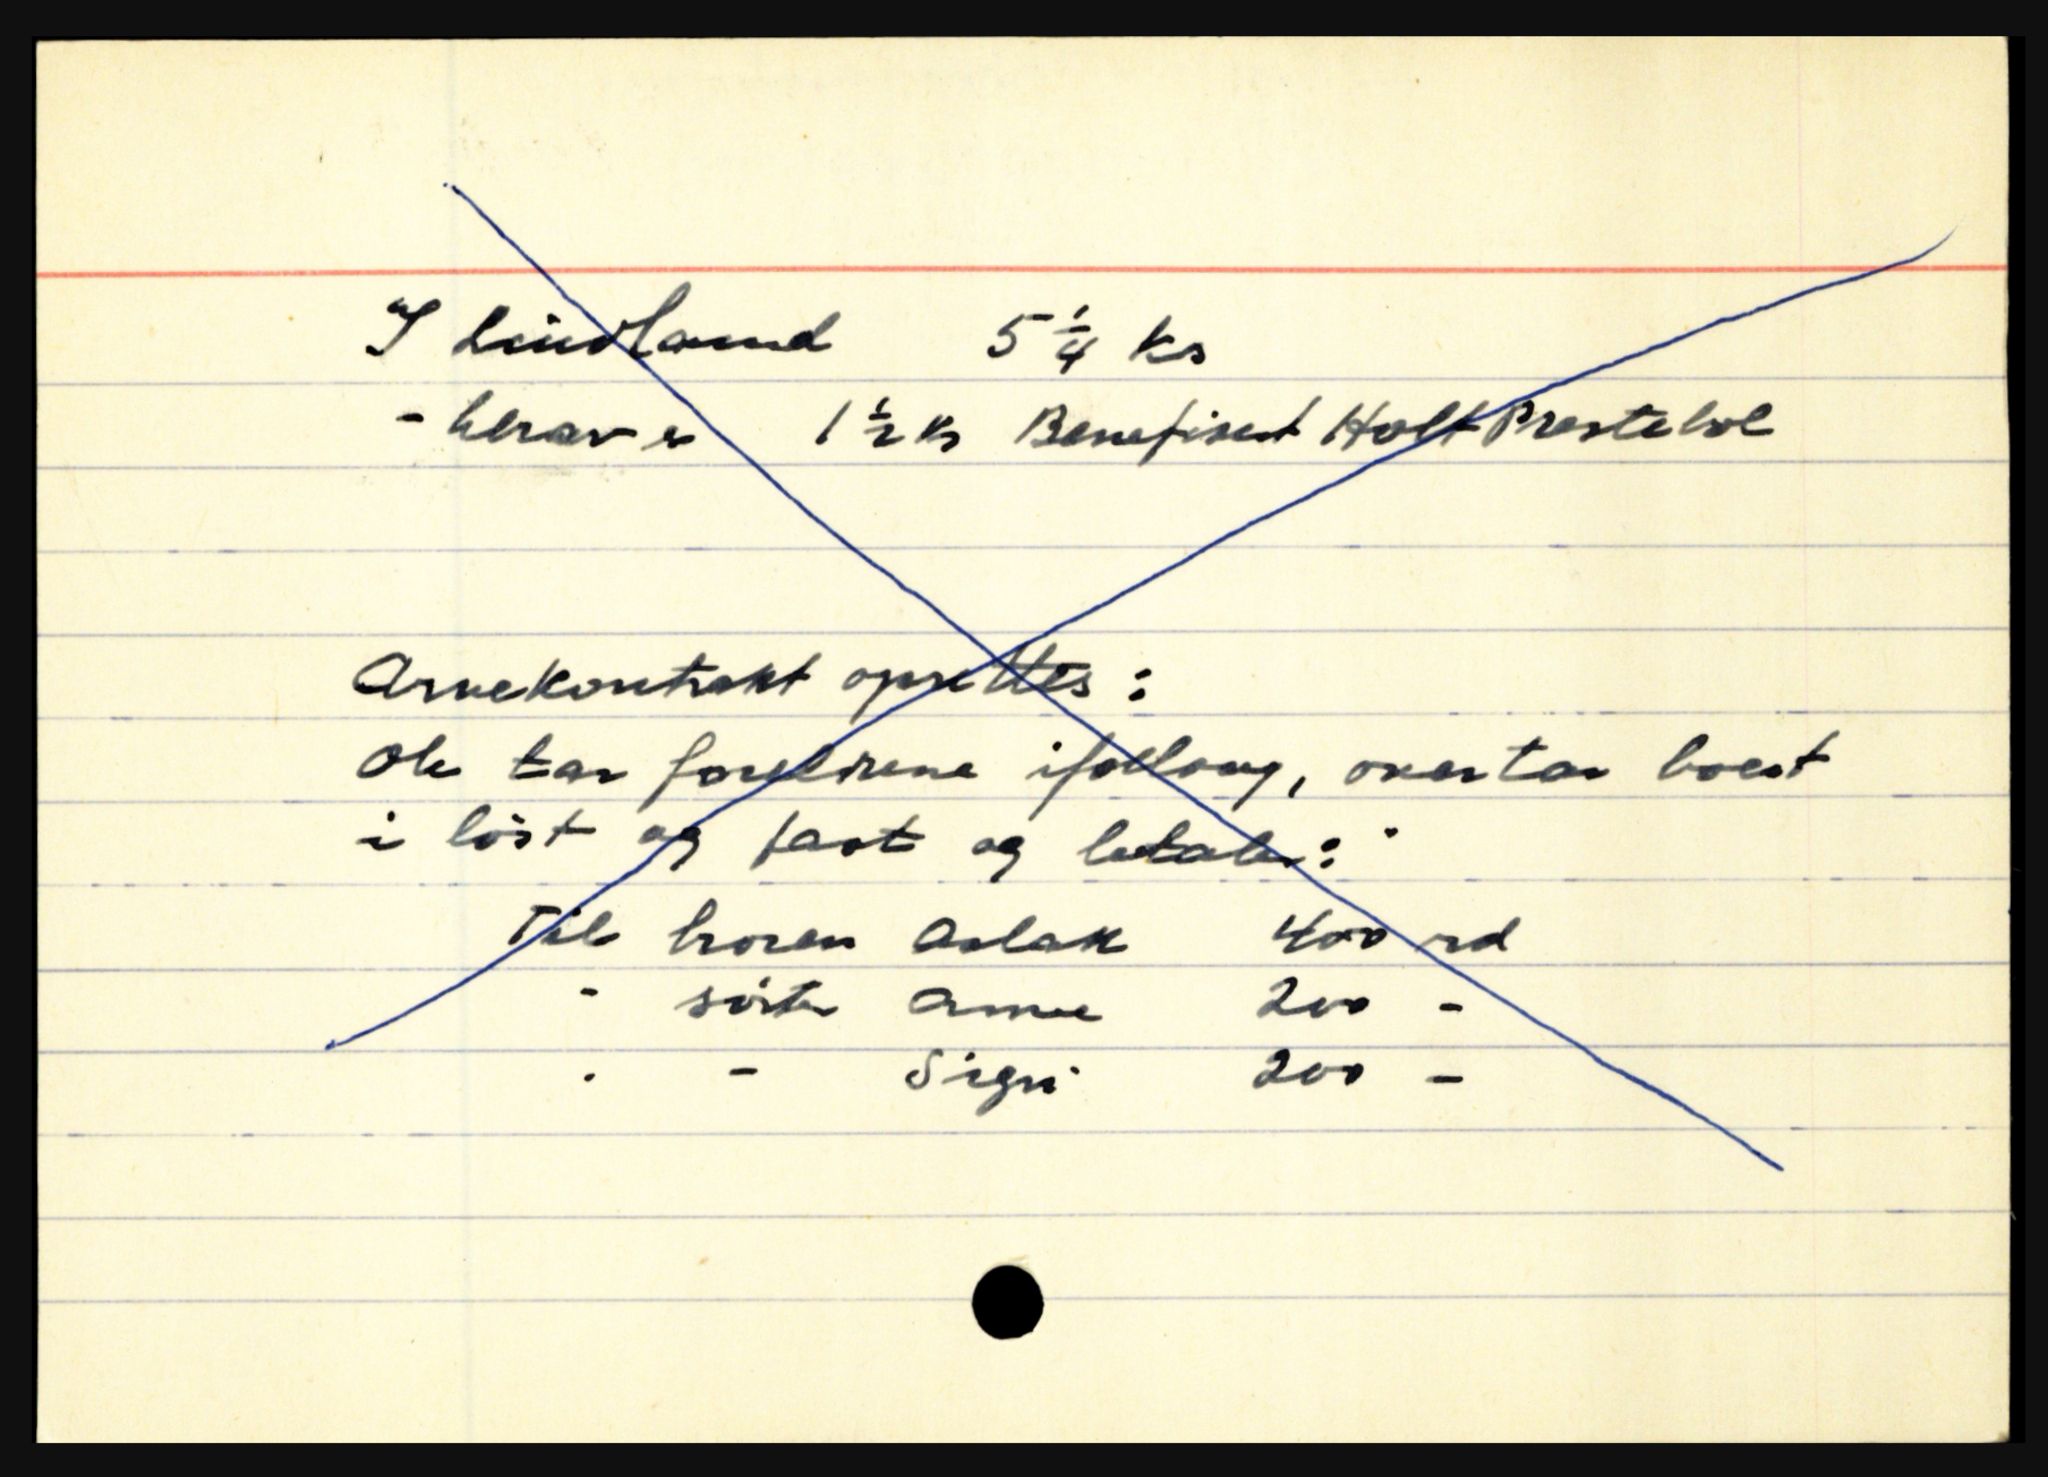 I Lindland 5 1/4 ks
- herav er 1 1/2 ks Benefisert Holt Prestebol
Arvekontrakt opsettes :
Ole tar foreldrene i forlovg, overtar boet
i löst og fast og betaler :
Til broren Aslak 400 rd
- söster Anne 200 -
. - Sigri 200 -